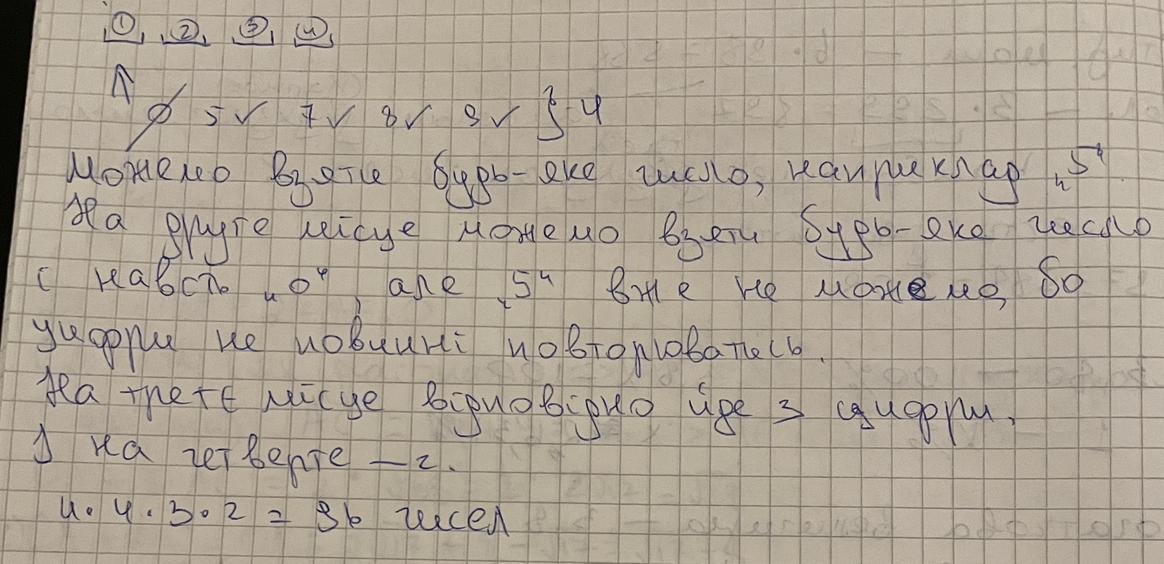 ① ② ③ ④
0 5✓ 7✓ 8✓ 9✓ } 4
Можемо взяти будь-яке число, наприклад „5“.
На друге місце можемо взяти будь-яке число
і навіть „0“, але „5“ вже не можемо, бо
цифри не повинні повторюватись.
На третє місце відповідно йде 3 цифри.
І на четверте – 2.
4·4·3·2 = 96 чисел